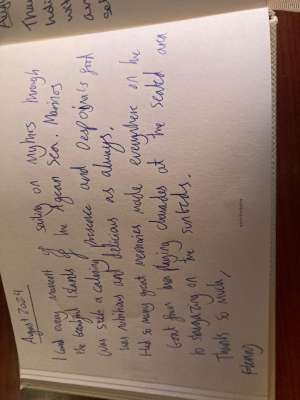 August 2024
I loved every moment of sailing on Mythos through
the beautiful islands of the Agean Sea. Marinos
was such a calming presence and Despoina's food
was nutritious and delicious as always.
Had so many great memories made everywhere on the
boat from playing charades at the seated area
to stargazing on the sunbeds.
Thanks so much,